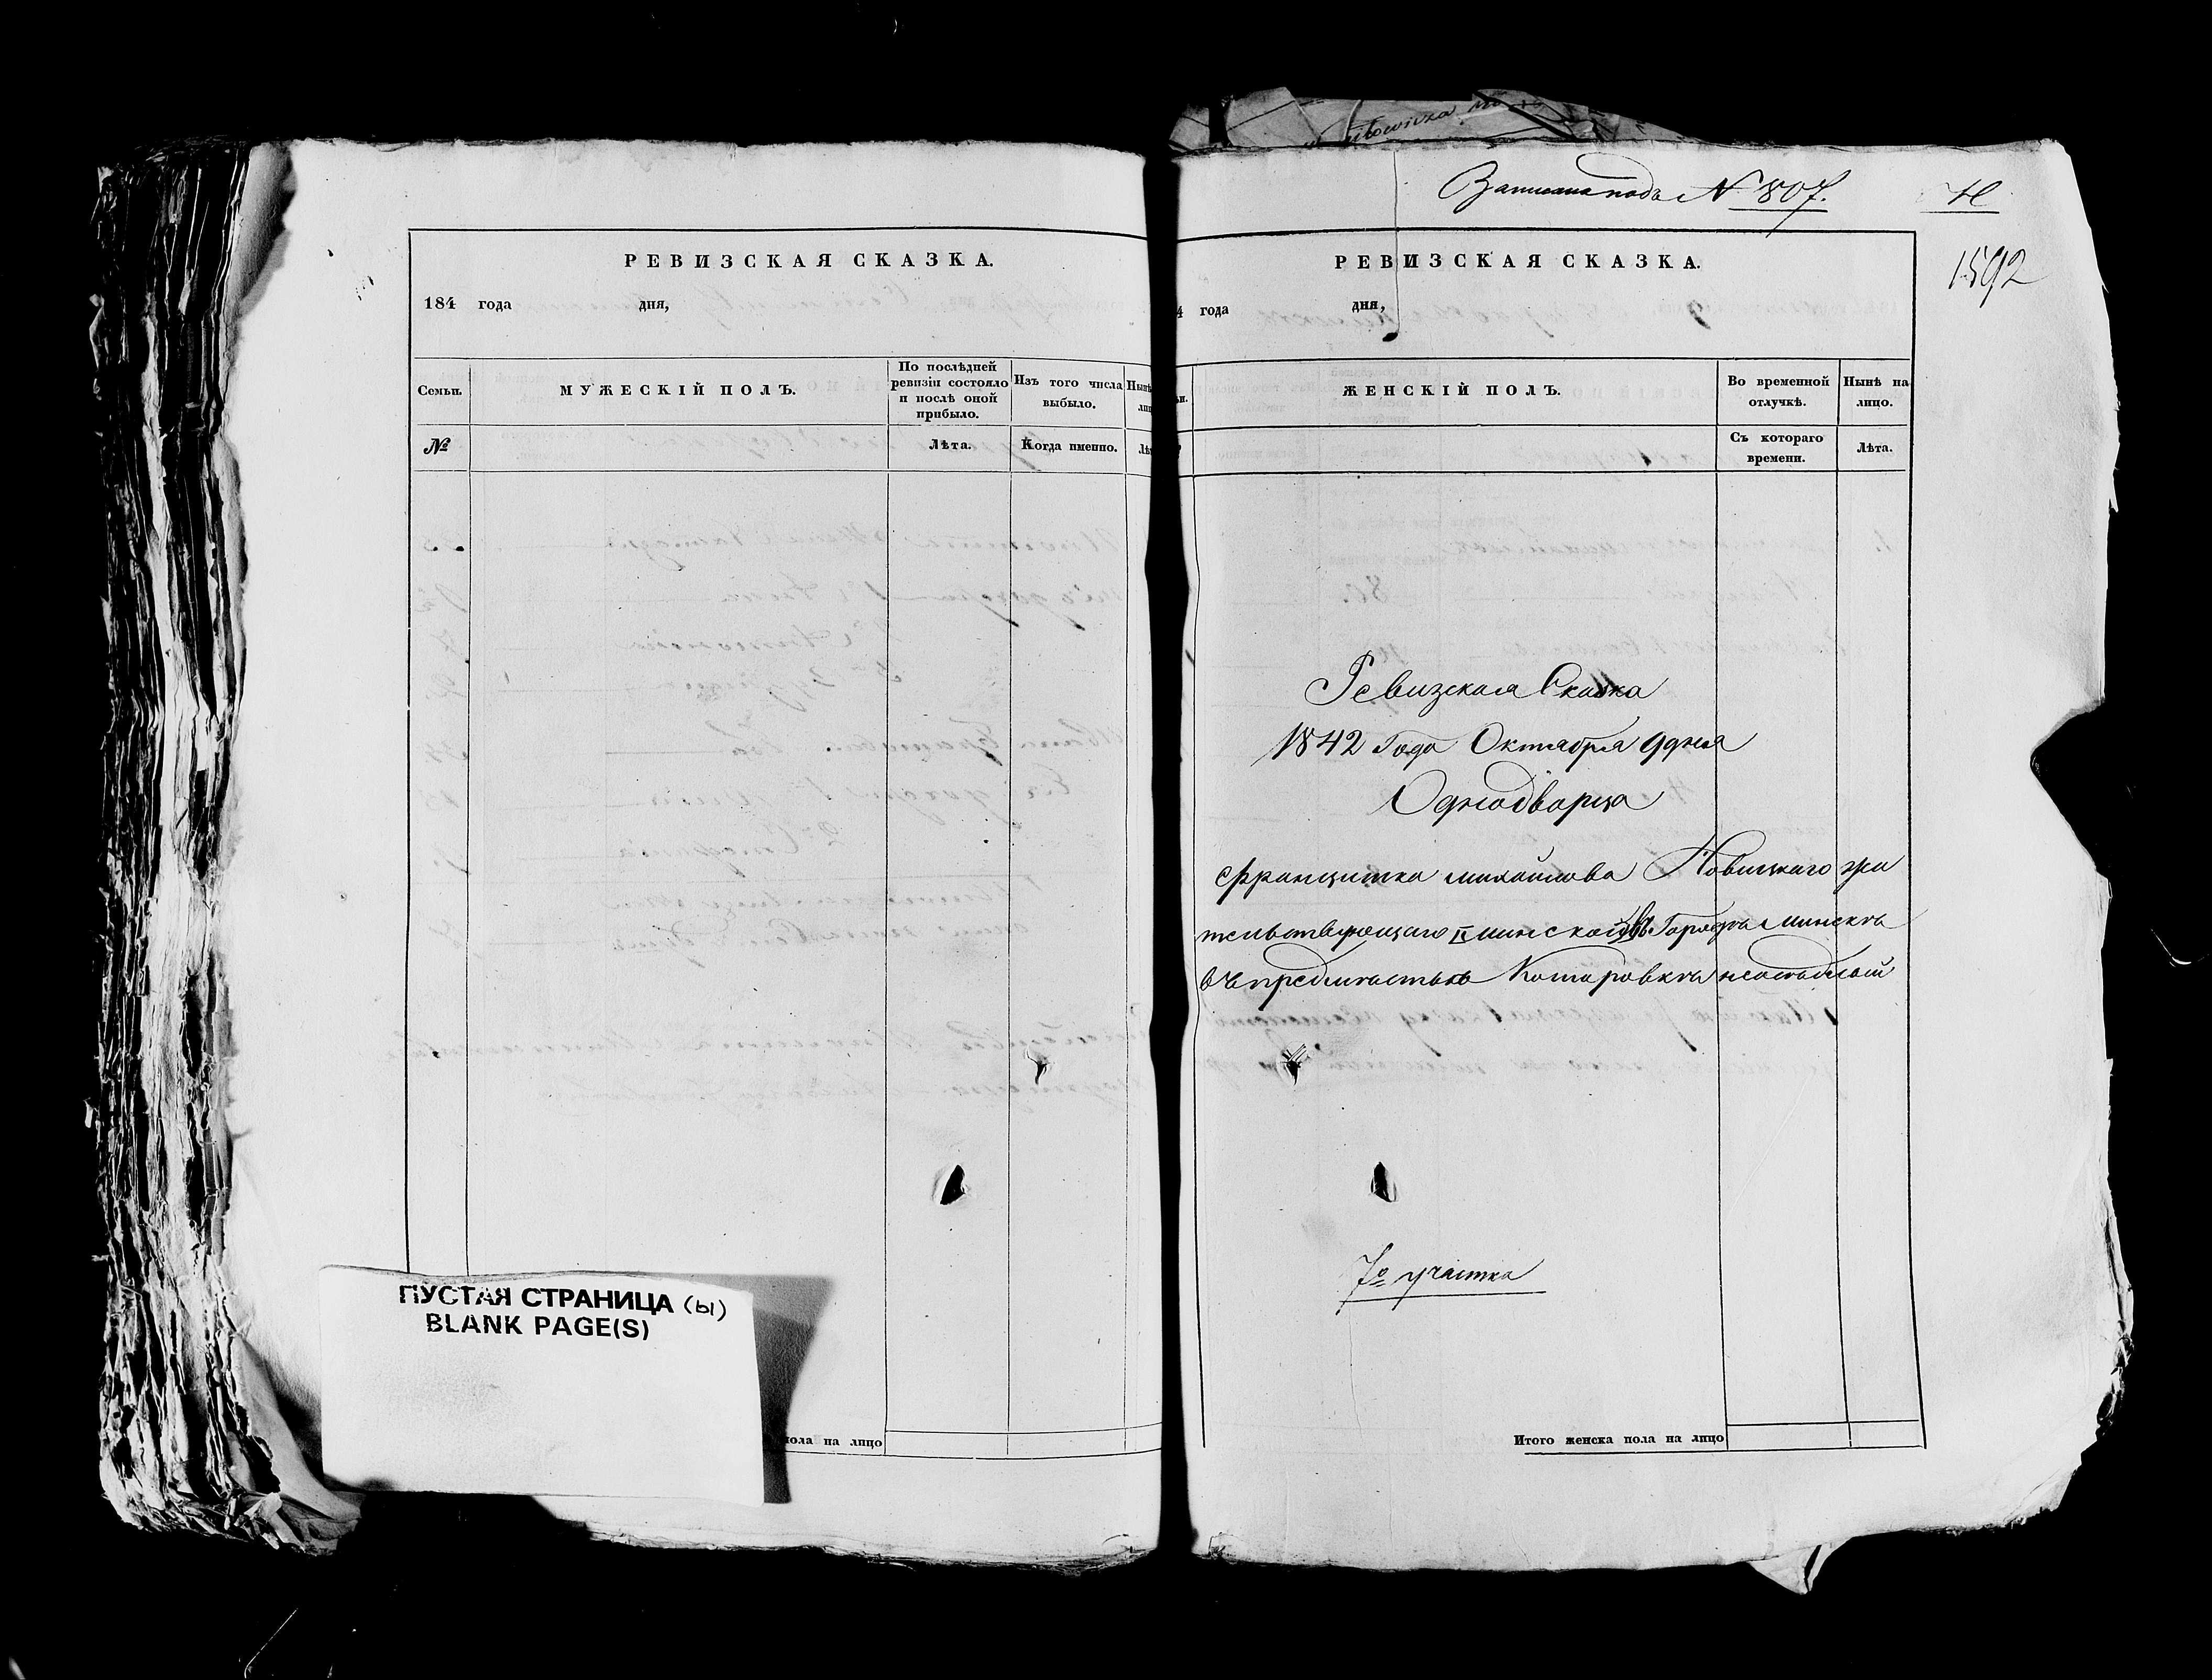 РЕВИЗСКАЯ СКАЗКА.
184 года дня,
Семьи. МУЖЕСКІЙ ПОЛЪ. По послѣдней ревизіи состояло и послѣ оной прибыло. Изъ того числа выбыло. Нынѣ
№ Лѣта. Когда именно.
ПУСТАЯ СТРАНИЦА (ы)
BLANK PAGE(S)
пола на лицо
Записана подъ № 807.
Н
1592
РЕВИЗСКАЯ СКАЗКА.
4 года дня,
ЖЕНСКІЙ ПОЛЪ. Во временной отлучкѣ. Нынѣ на лицо.
Съ котораго времени. Лѣта.
Ревизская Сказка
1842 Года Октября 9 дня
Однодворца
Францишка михайлова Новицкаго жи
тельствующаго Городѣ Минскѣ
въ предмѣстьѣ Комаровкѣ
7го участка
Итого женска пола на лицо